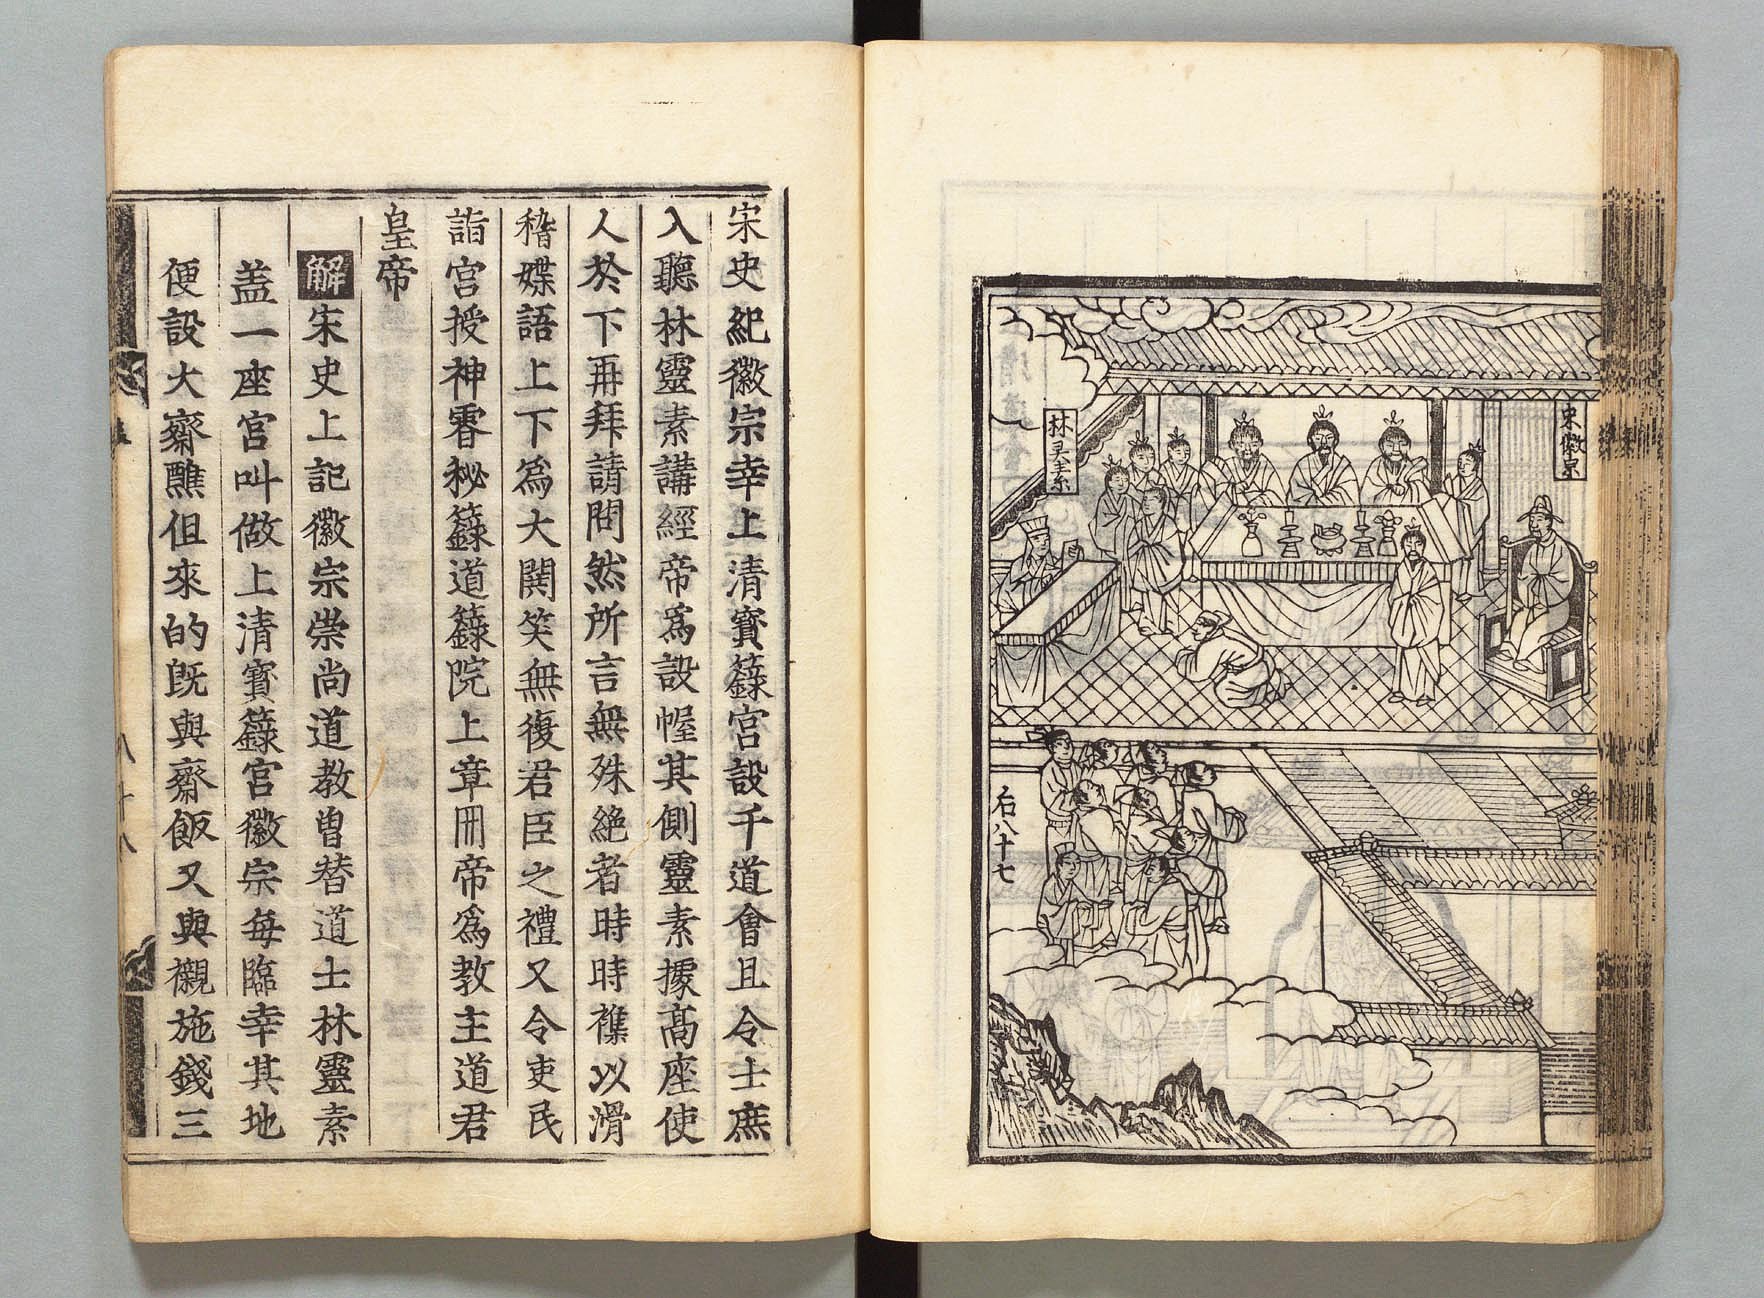 宋徽宗
林灵素
后八十七
宋史紀徽宗幸上清寳籙宮設千道會且令士庶
入聽林靈素講經帝爲設幄其側靈素據髙座使
人於下再拜請問然所言無殊絶者時時襍以滑
稽媟語上下爲大閧笑無復君臣之禮又令吏民
詣宮授神霄秘籙道籙院上章冊帝爲教主道君
皇帝
解宋史上記徽宗崇尚道教曽替道士林靈素
盖一座宮叫做上清寳籙宮徽宗每臨幸其地
便設大齋醮但來的旣與齋飯又與襯施錢三
八十八